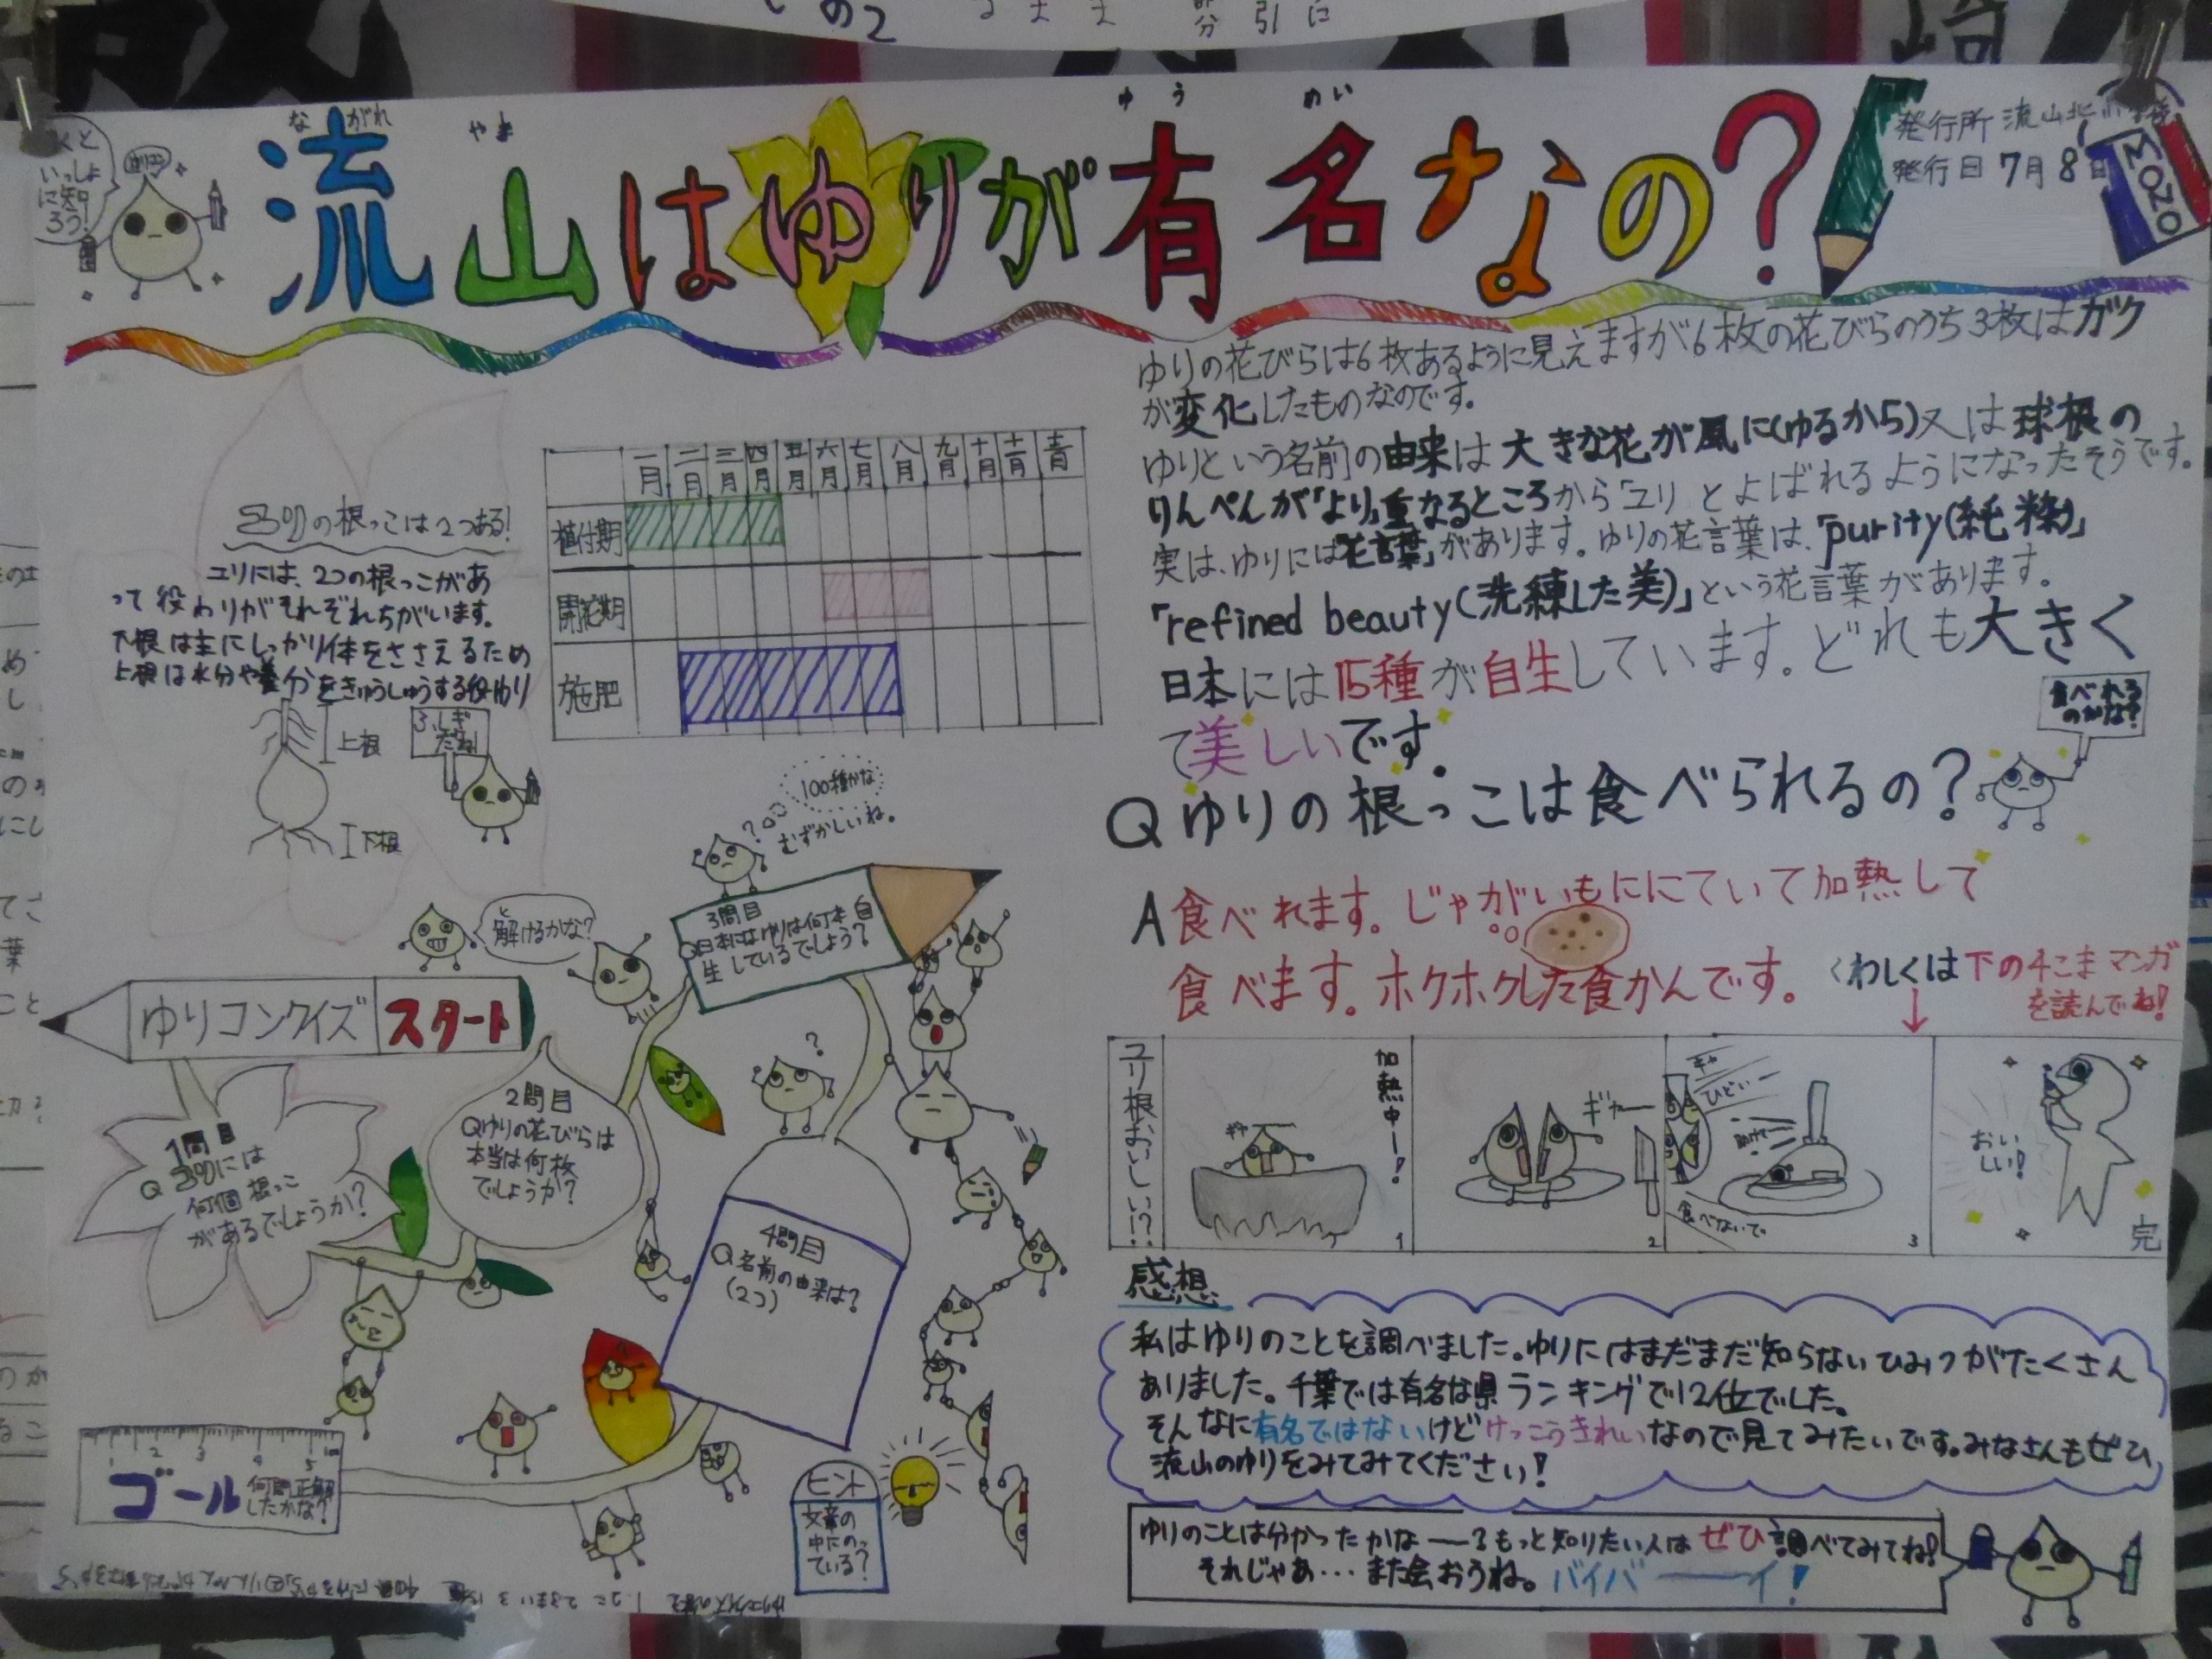 いっしょ
に知
ろう!
ゆりコン
な がれ やま ゆう めい
流山はゆりが有名なの?
発行所 流山北小学校
発行日 7月8日
MONO
ゆりの花びらは6枚あるように見えますが6枚の花びらのうち3枚はガク
が変化したものなのです。
ゆりという名前の由来は大きな花が風に(ゆるから)又は球根の
りんぺんが「より」重なるところから「ユリ」とよばれるようになったそうです。
実は、ゆりには「花言葉」があります。ゆりの花言葉は、「purity(純粋)」
「refined beauty(洗練した美)」という花言葉があります。
日本には15種が自生しています。どれも大きく
て美しいです。
ユリの根っこは2つある!
ユリには、2つの根っこがあ
って役わりがそれぞれちがいます。
下根は主にしっかり体をささえるため
上根は水分や養分をきゅうしゅうする役わり
上根
下根
ふしぎ
だね!
一月 二月 三月 四月 五月 六月 七月 八月 九月 十月 十一月 十二月
植付期
開花期
施肥
食べれる
のかな?
Qゆりの根っこは食べられるの?
A食べれます。じゃがいもににていて加熱して
食べます。ホクホクした食かんです。
くわしくは下の4こまマンガ
を読んでね!
100種かな
むずかしいね。
解けるかな?
ゆりコンクイズ スタート
1問目
Qユリには
何個根っこ
があるでしょうか?
2問目
Qゆりの花びらは
本当は何枚
でしょうか?
3問目
Q日本にはゆりは何本自
生しているでしょう?
4問目
Q名前の由来は?
(2つ)
ゴール
何問正解
したかな?
ヒント
文章の
中にの
っている?
ユリ根おいしい!?
加熱中ー!
ギャ
1
ギャー
2
ギャ
ひどい
助けて
食べないで。
3
おい
しい!
完
感想
私はゆりのことを調べました。ゆりにはまだまだ知らないひみつがたくさん
ありました。千葉では有名な県ランキングで12位でした。
そんなに有名ではないけどけっこうきれいなので見てみたいです。みなさんもぜひ、
流山のゆりをみてみてください!
ゆりのことは分かったかなー?もっと知りたい人はぜひ調べてみてね!
それじゃあ…また会おうね。バイバーイ!